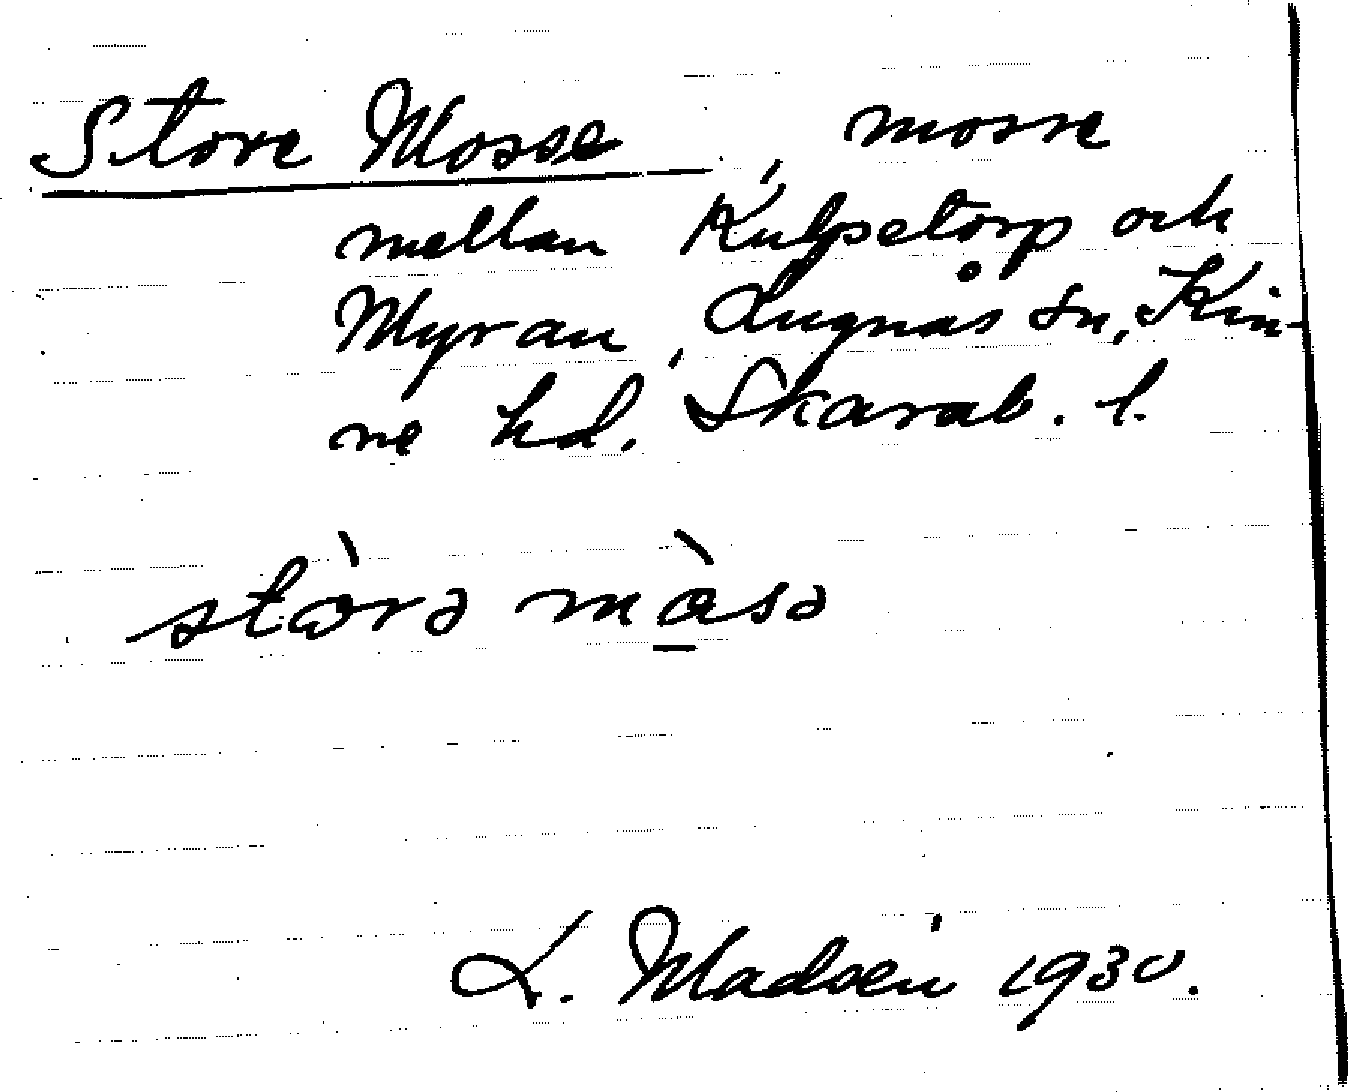 Store Mosse, mosse
mellan Kulpetorp och
Myran, Lugnås sn, Kin-
ne hd. Skarab. l.
stòrə mòsə
L. Madsén 1930.